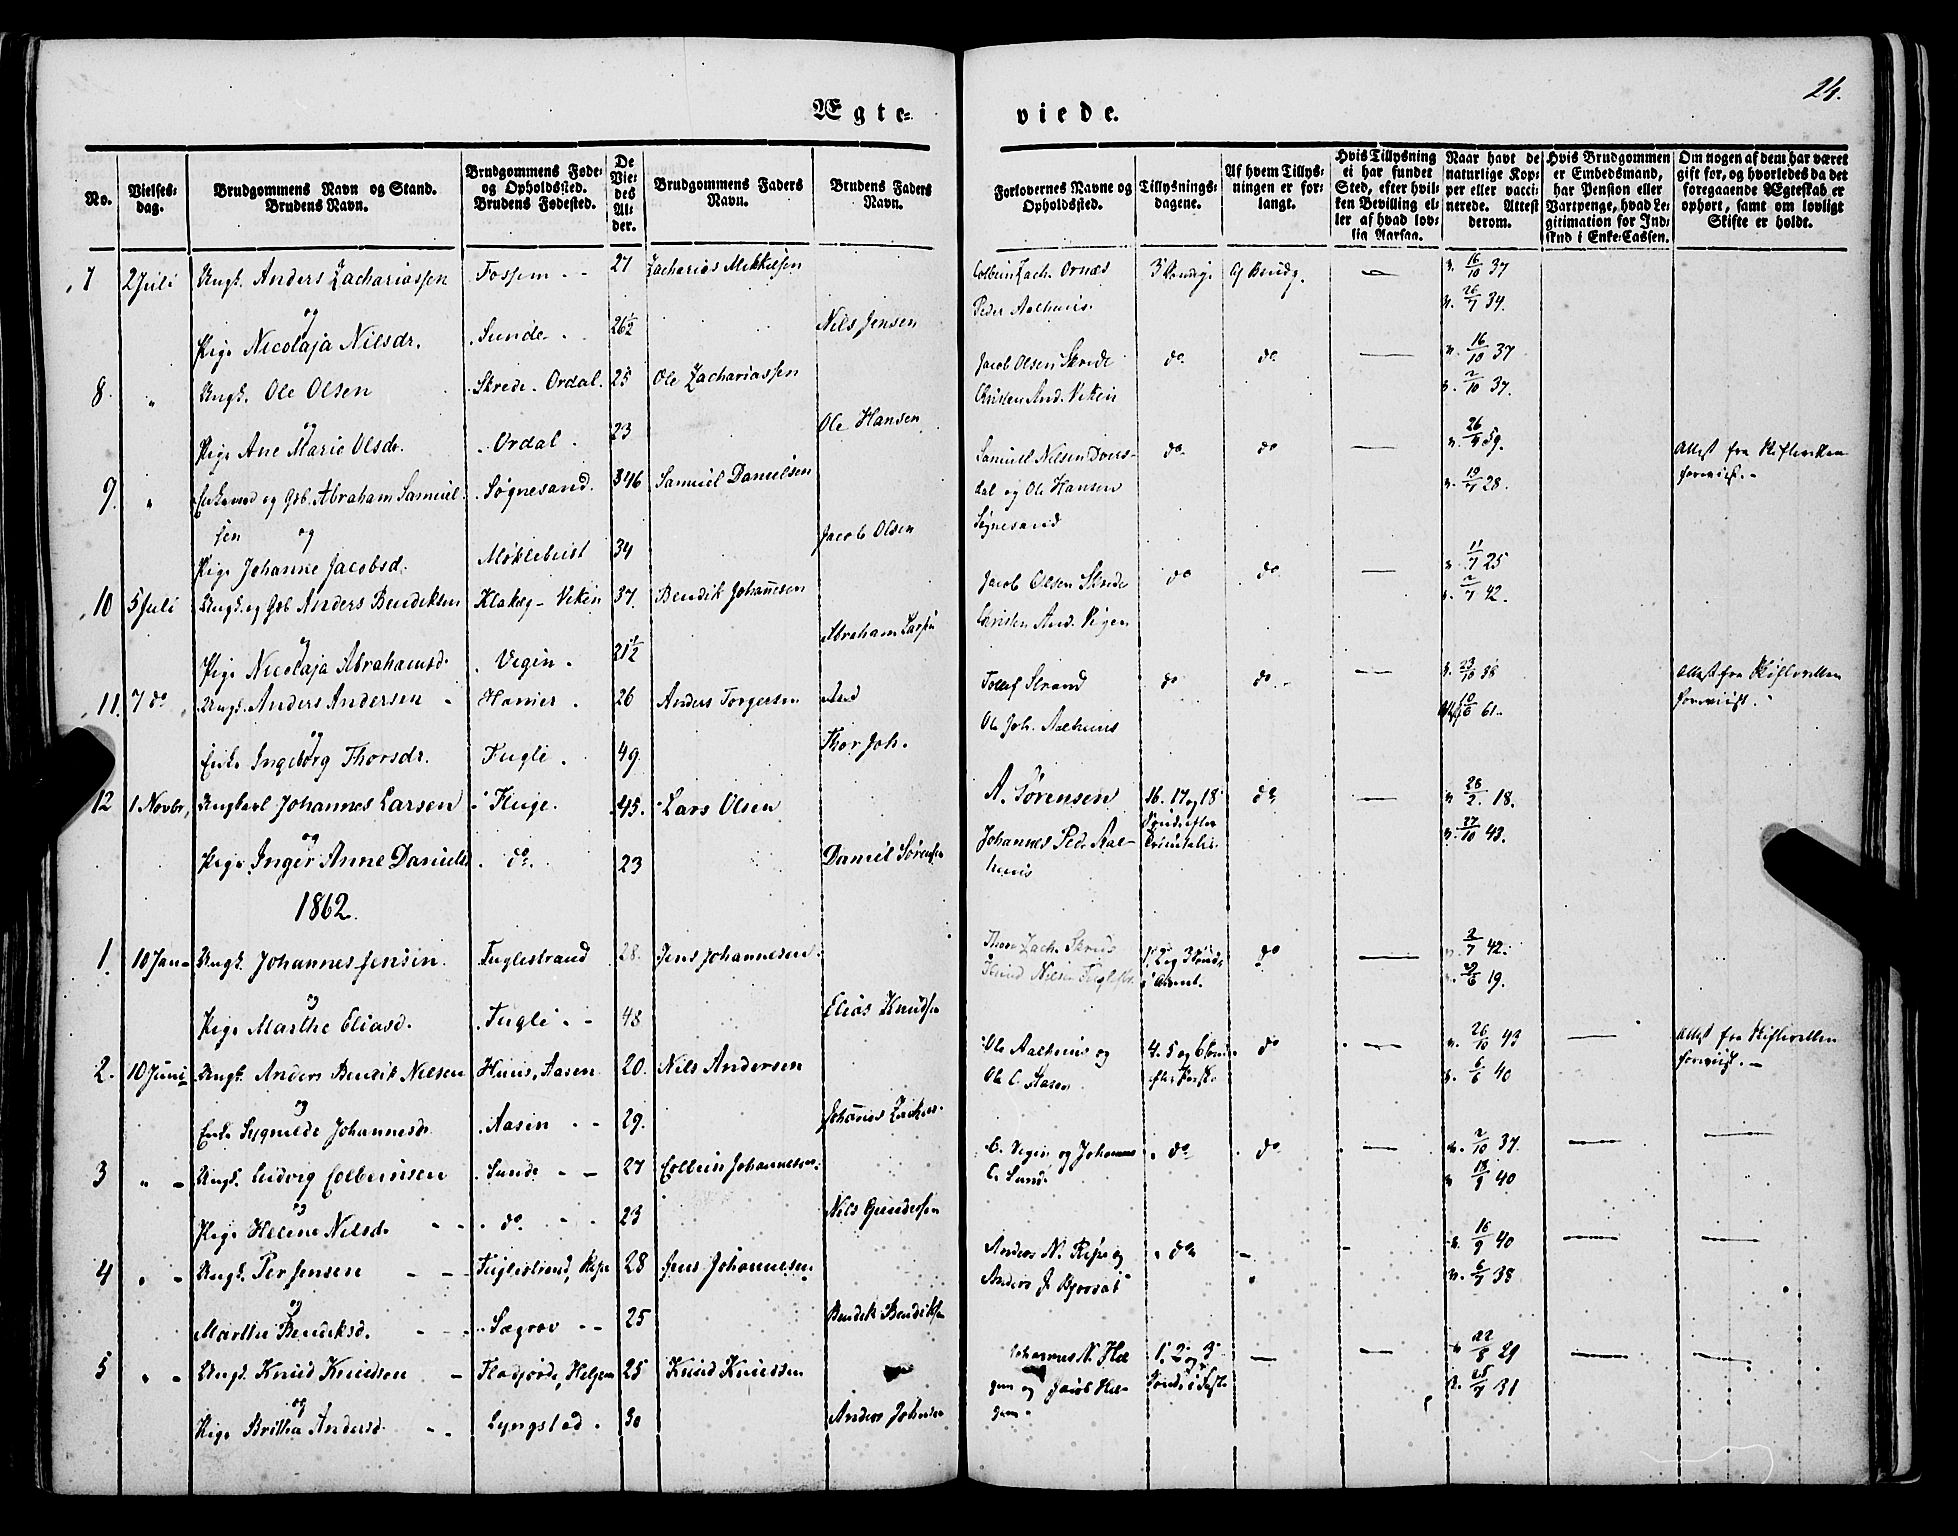 26.
Ægte=
viede.
No.
Vielses-dag.
Brudgommens Navn og Stand. Brudens Navn.
Brudgommens Føde- og Opholdssted. Brudens Fødested.
De Viedes Alder.
Brudgommens Faders Navn.
Brudens Faders Navn.
Forlovernes Navne og Opholdssted.
Tillysnings-dagene.
Af hvem Tillysningen er forlangt.
Hvis Tillysning ei har fundet Sted, efter hvilken Bevilling eller af hvad lovlig Aarsag.
Naar havt de naturlige Kopper eller vaccinerede. Attest derom.
Hvis Brudgommen er Embedsmand, har Pension eller Vartpenge, hvad Legitimation for Indskud i Enke-Cassen.
Om nogen af dem har været gift før, og hvorledes da det foregaaende Ægteskab er ophørt, samt om lovligt Skifte er holdt.
7 2 Juli Ungk. Anders Zachariassen Fossem 27 Zacharias Mikkelsen Colbein Zach. Ornæs 3 Søndg. Af Brudg. 16/10 37
og Peder Aalhuus 26/7 34.
Pige Nicolaja Nilsdr. Sunde 26½ Nils Jensen
8. " Ungk. Ole Olsen Skrede. Ordal. 25 Ole Zachariassen Jacob Olsen Skrede do do 16/10 37
og Christen And. Viken 2/10 37.
Pige Ane Marie Olsdr. Ordal. 23 Ole Hansen
9. " Enkemd og Gb. Abraham Samuel- Søgnesand. 46 Samuel Danielsen Samuel Nilsen do do 26/9 59. Attest fra Skifteretten
sen og dal og Ole Hansen 19/7 28. foreviist.
Søgnesand
Pige Johanne Jacobsd. Møklebust 34 Jacob Olsen
10 5 Juli Ungk. og Gb. Anders Bendiksen Klakeg - Viken 37. Bendik Johannesen Jacob Olsen Skrede do do 11/7 25
og Christen And. Vigen 2/7 42.
Pige Nicolaja Abrahamsd. Vigen. 21½ Abraham Larsen
11. 7 do Ungk. Anders Andersen Hamer 26 Anders Torgersen Tollef Strand do do 23/10 38 Attest fra Skifteretten
og Ole Joh. Aalhuus 61. foreviist.
Enke Ingeborg Thorsdr. Fugle 49 Thor Joh.
12 1 Novbr. Ungkarl Johannes Larsen Fluge. 45. Lars Olsen A. Sørensen 16. 17 og 18 do 28/2 18.
og Johannes Ped. Aal- Sønd. efter 27/10 43.
huus Trinitatis
Pige Inger Anne Daniels do. 23 Daniel Sørensen
1862.
1. 10 Jan Ungk. Johannes Jensen Fuglestrand 28. Jens Johannesen Thore Zach. Skrede 1. 2 og 3 Sønd. do 2/7 42.
og Knud Nilsen i Advent. 19.
Pige Marthe Eliasd. Fugle 48 Elias Knudsen
2. 10 Juni Ungk. Anders Bendik Nilsen Huus, Aasen 20. Nils Andersen Ole Aalhuus og 4. 5 og 6 Sønd. do 26/10 43 Attest fra Skifteretten
og Ole C. Aasen efter Paaske 6/6 40 foreviist.
Enke Sygnilde Johannesdr. Aasen 29. Johannes
3 " Ungk. Ludvig Colbeinsen Sunde 27 Colbein Johannesen C. Vegen og Johannes do do 2/10 37.
og C. Sunde 13/9 40
Pige Helene Nilsd. do. 23 Nils Gundersen
4 " Ungk. Per Jensen Fuglestrand, 28 Jens Johannesen Anders N. og do 16/9 40
og Anders J. 6/7 38
Marthe Bendiksd. Sægrov 25 Bendik Bendiksen
5 " Ungk. Knud Knudsen Flatjord, Helgem 25 Knud Knudsen Johannes N. Hel- 1. 2 og 3 22/8 29
og gem og Jacob Hel- Sønd. i Faste 31
gem.
Pige Britha Andersd. Lyngstad. 30 Anders Johnsen